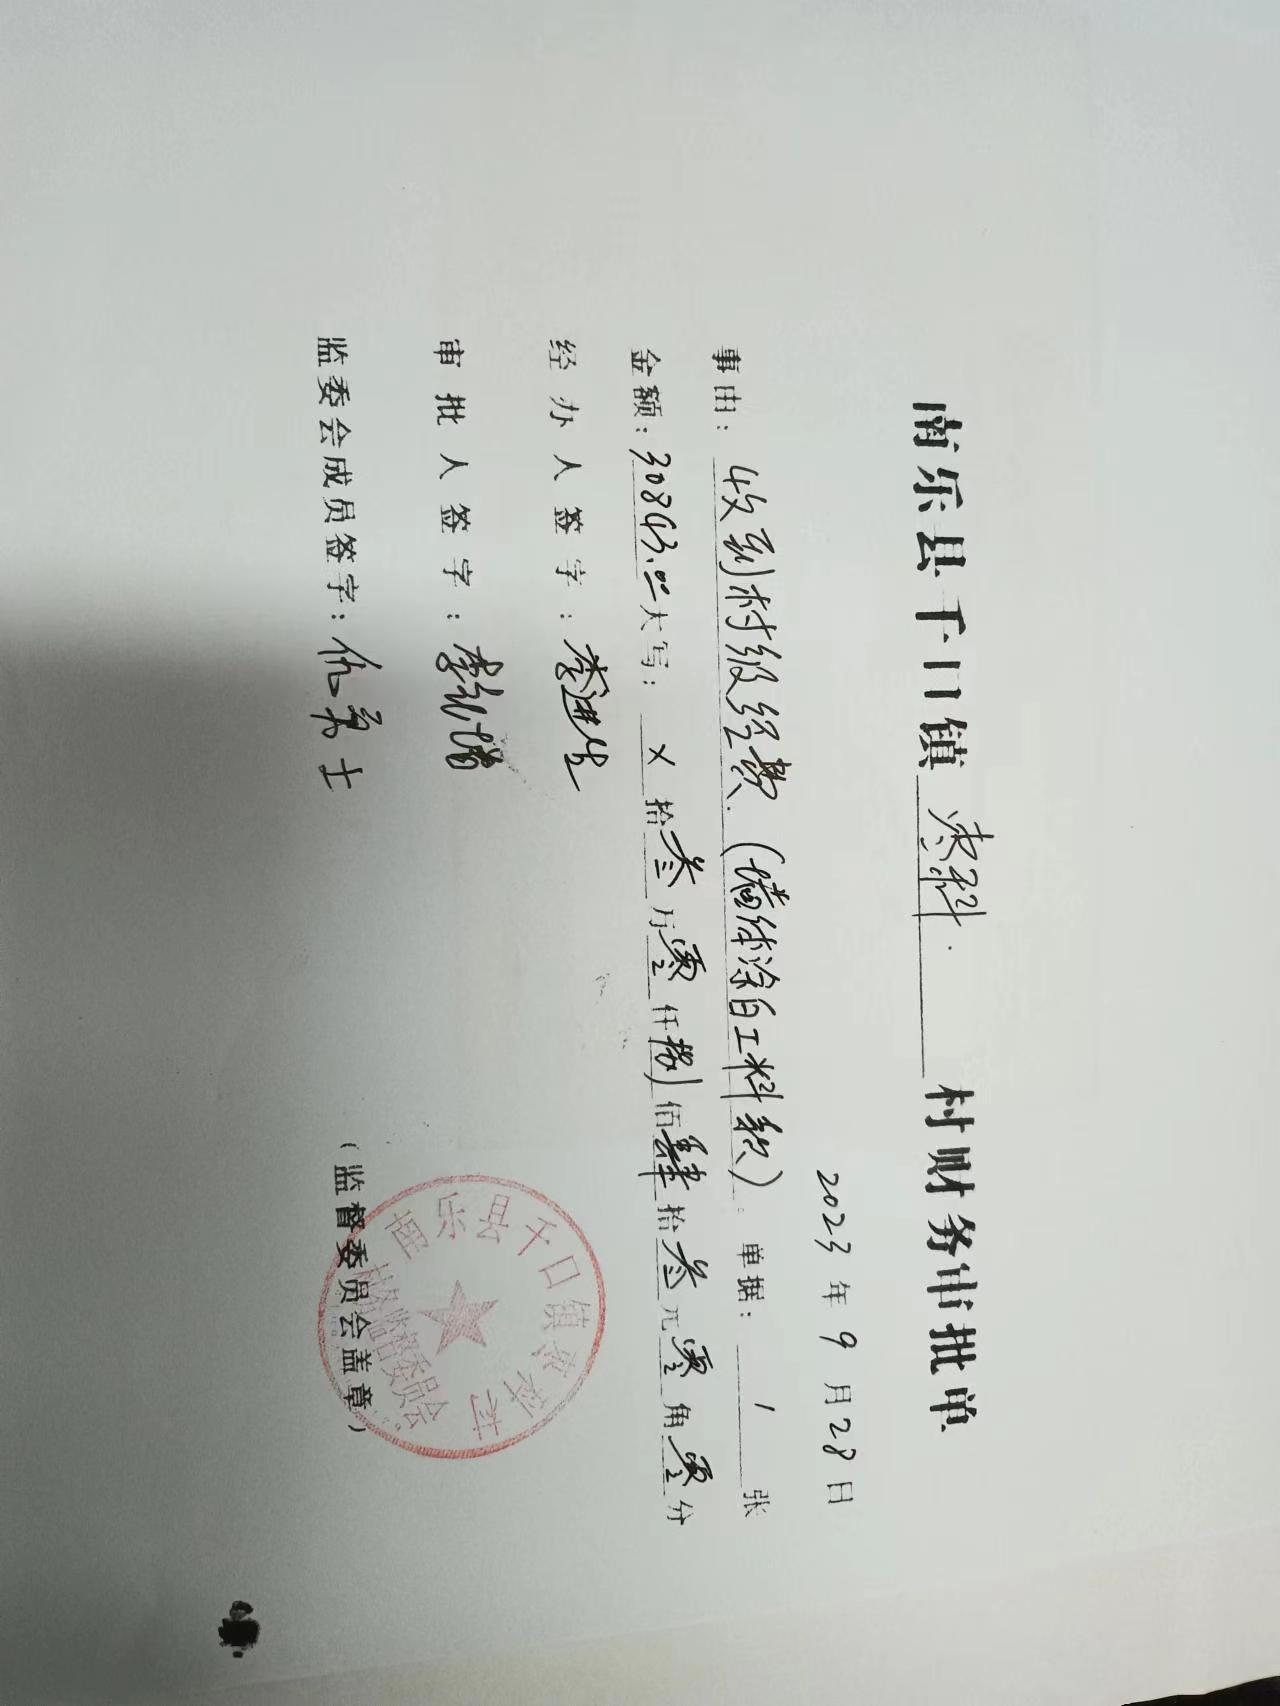 南乐县千口镇 枣科 村财务审批单
2023年9月28日
事由：收到村级经费（墙体涂白工料款）。单据：1张
金额：30843.00大写：×拾叁万零仟捌佰肆拾叁元零角零分
经办人签字：李进生
审批人签字：李
监委会成员签字：仇勇士
（监督委员会盖章）
南乐县千口镇枣科村
村务监督委员会